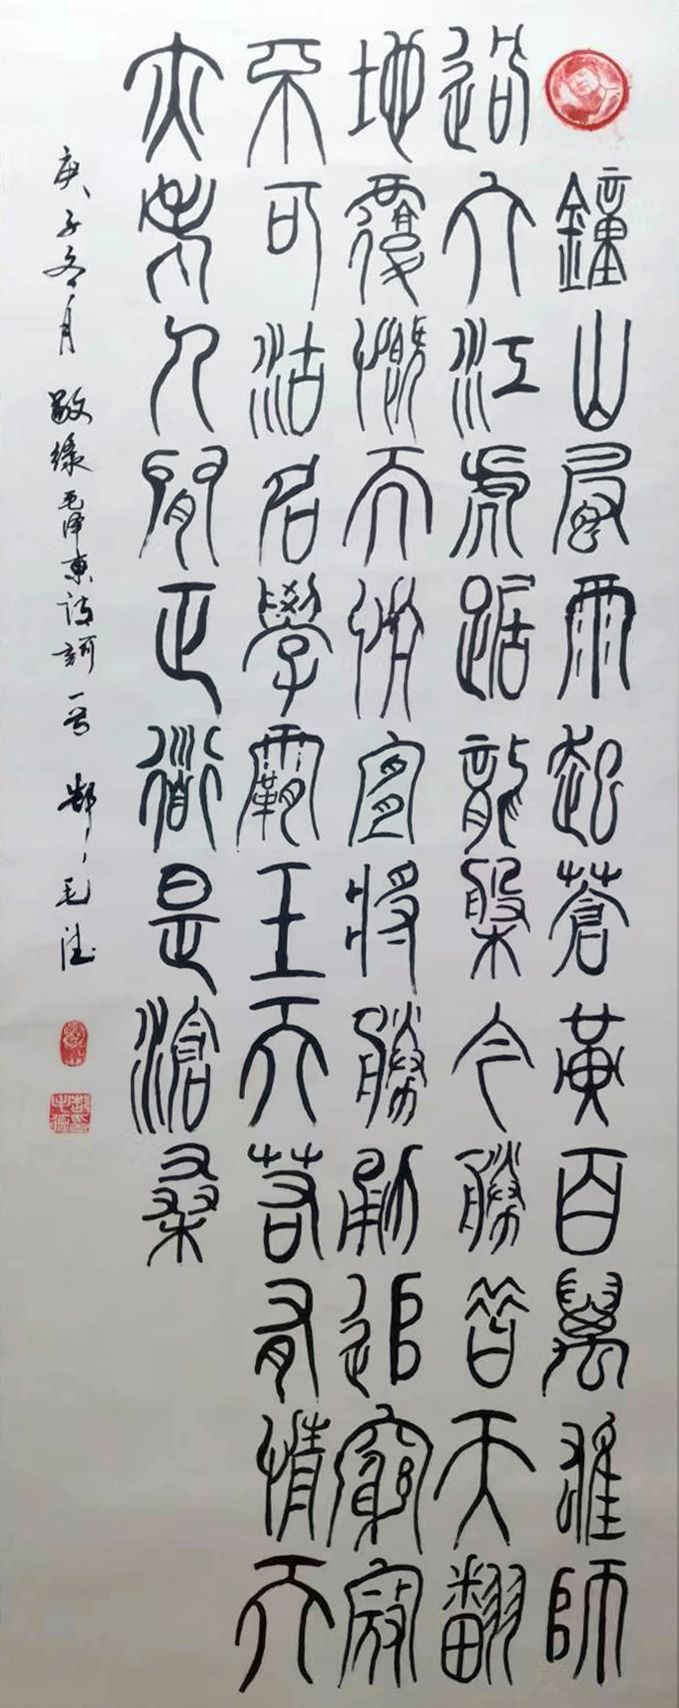 鐘山風雨起蒼黃百萬雄師
過大江虎踞龍槃今勝昔天翻
地覆慨而慷宜將勝勇追窮寇
不可沽名學霸王天若有情天
亦老人間正道是滄桑
庚子冬月 敬録毛泽東詩詞一首 毛